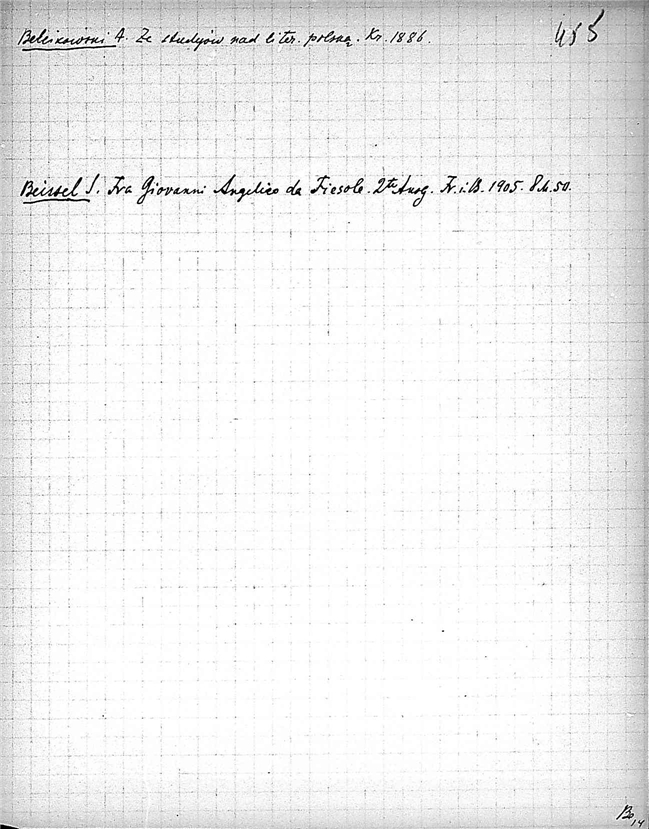 Bełcikowski A. Ze studyów nad liter. polską. Kr. 1886.
455
Beissel S. Fra Giovanni Angelico da Fiesole. 2te Ausg. Fr. i. B. 1905. 8 M. 50.